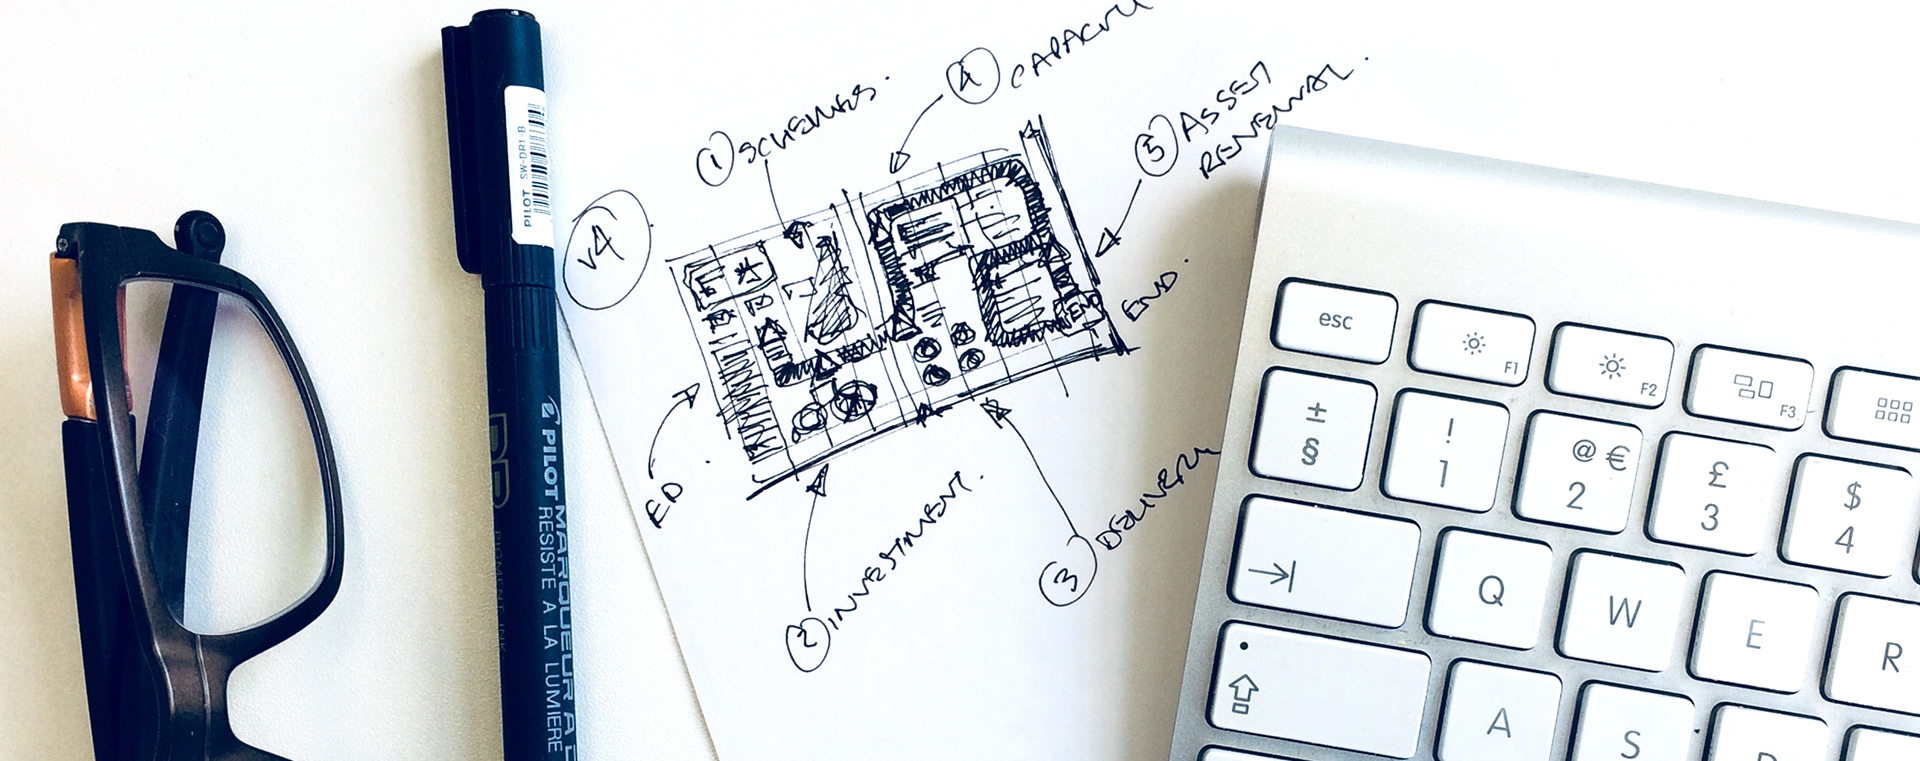 ④ CAPACITY
① SCHEMES.
⑤ ASSET
RENEWAL.
V4
END
END.
ED.
② INVESTMENT.
③ DELIVERY
PILOT SW-DR1-B
DR
PILOT MARQUEUR A
RESISTE A LA LUMIERE
PIGMENT INK
esc
F1
F2
F3
±
§
!
1
@ €
2
£
3
$
4
Q
W
E
R
A
S